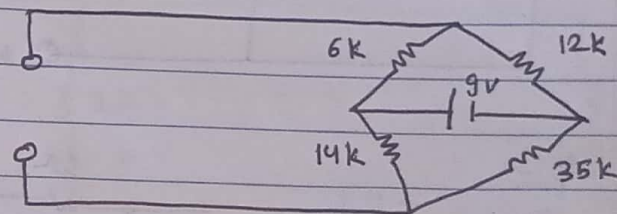 6k
12k
9v
14k
35k